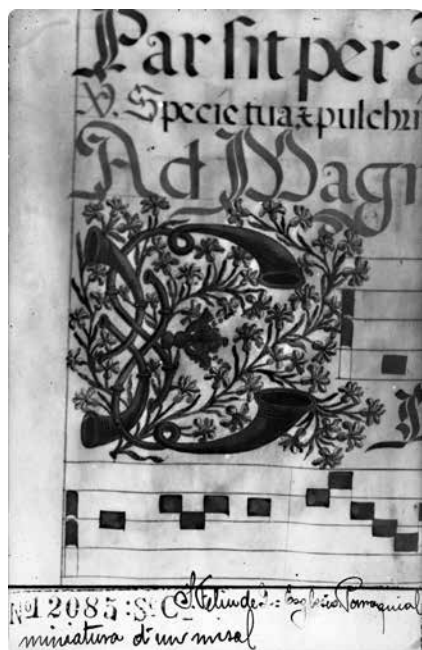 Par sit per
V. Specie tua, & pulchri
Ad Magn
E
Nº 12085 : Sº C- S. Feliu de Esglesia Parroquial
miniatura d'un misal